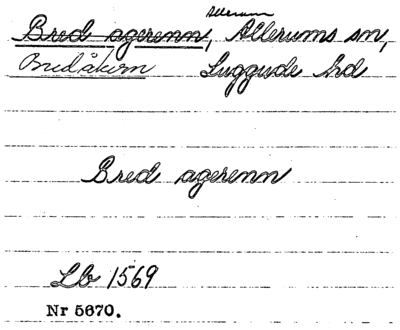 Allerum
Bred agerenn, Allerums sn,
Bredåkern Luggude hd
Bred agerenn
Lb 1569
Nr 5670.